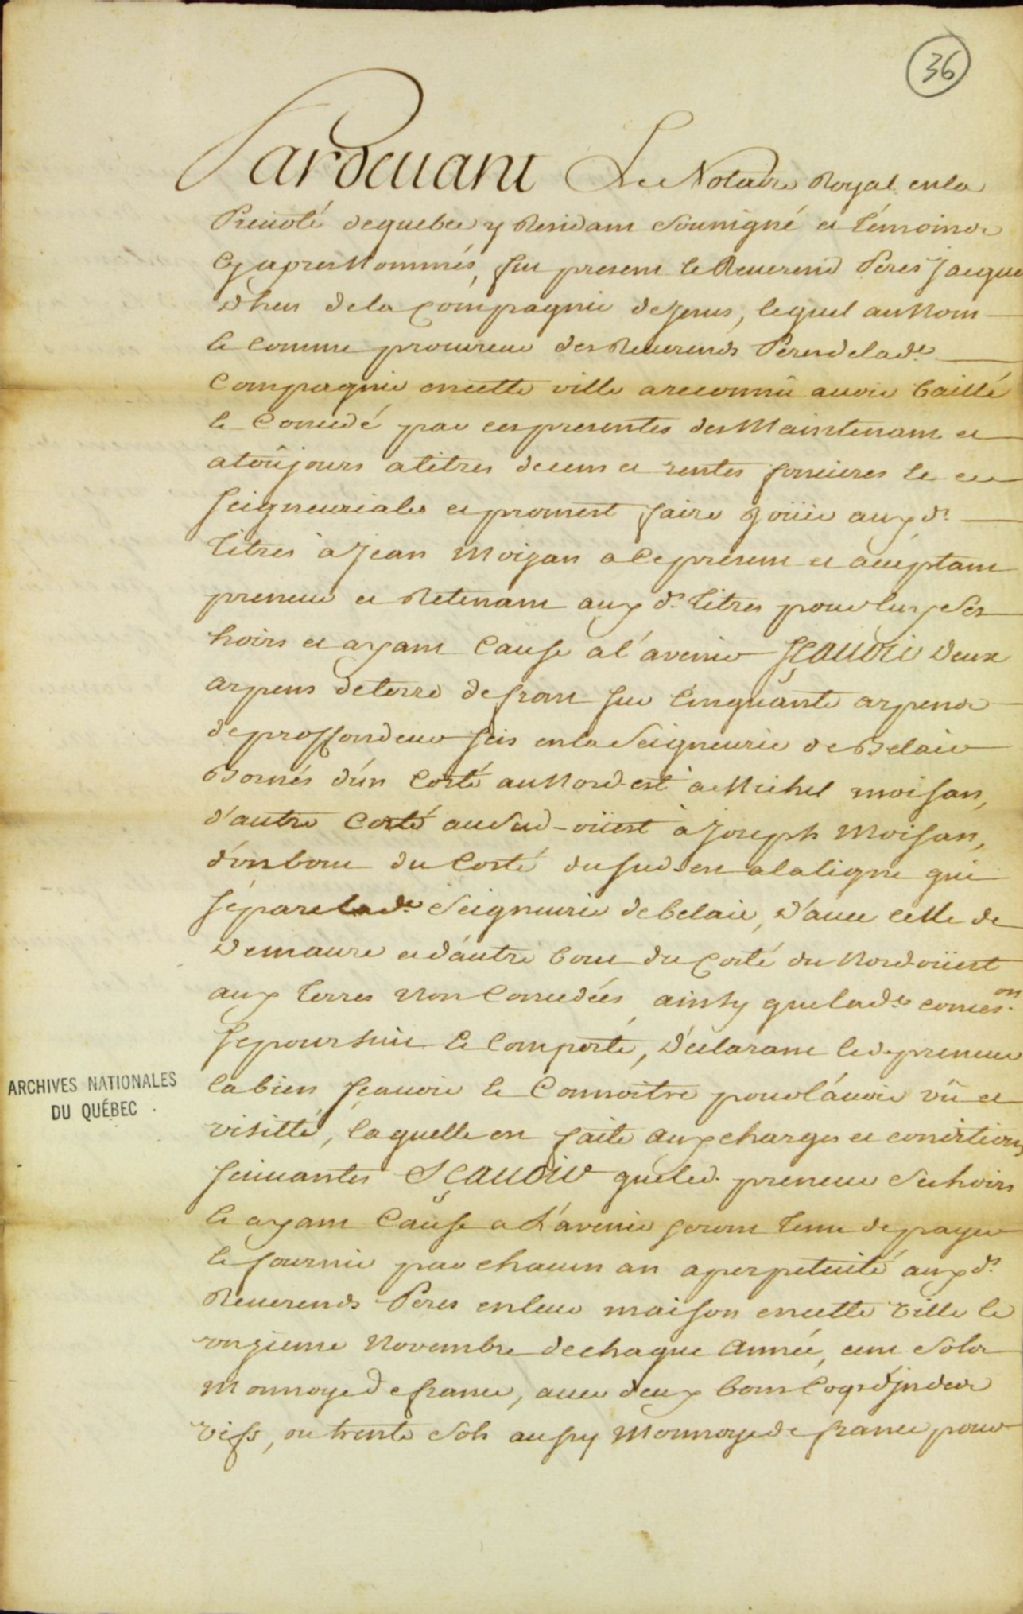 36
Pardeuant Le Notaire Royal en la
Preuoté de quebec y Residant Soussigné et témoins
Cy apres Nommés, fut present le Reuerend Peres Jacque
Dheu de la Compagnie de Jesus, lequel au Nom
& comme procureur des Reuerends Peres de lad.e
Compagnie en cette ville a reconnû auoir baillé
& Concedé par ces presentes des Maintenant et
a toûjours a titres de cens et rentes foncieres &
seigneuriales et promest faire joüir aux ds.
titres à Jean Moizan a ce present et acceptant
preneur et Retenant aux ds. titres pour luy ses
hoirs et ayant Cause a l'avenir SÇAUOIR Deux
arpens de terre de front sur Cinquante arpens
de proffondeur sçis en la Seigneurie de Belair
Bornés d'un Costé au Nord-est à Michel moisan,
d'autre Costé au Sud-oüest à Joseph Moisan,
d'un bout du Costé du sud-est a la ligne qui
sépare lad.e Seigneurie de belair, D'auec celle de
Demaure et d'autre bout du Costé du Nord oüest
aux terres Non Concedées, ainsy que lad.e conces.on
se poursuit & Comporte, Déclarant led. preneur
la bien sçauoir & Connoitre pour l'auoir vû et
visitté, laquelle est faite aux charges et conditions
suiuantes SÇAUOIR que led. preneur Ses hoirs
& ayant Cause a L'avenir seront tenu de payer
& fournir par chacun an a perpetuité aux ds.
Reuerends Peres en leur maison en cette Ville le
onzieme Novembre de chaque Année, cent Sols
Monnoye De france, auec deux bons Coqs d'Jndes
vifs, ou trente Sols aussy Monnoye de france pour
ARCHIVES NATIONALES
DU QUÉBEC